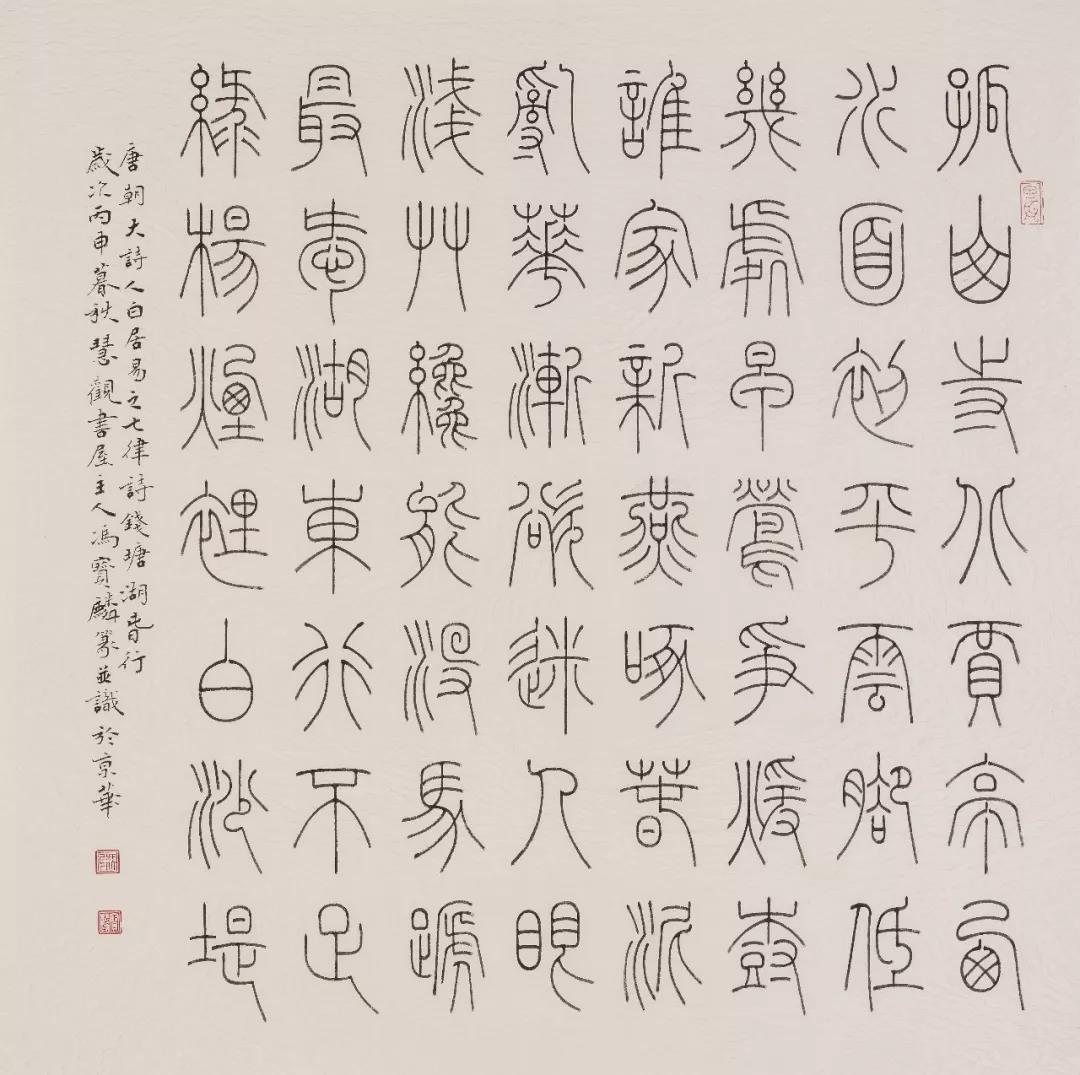 孤山寺北賈亭西
水面初平雲腳低
幾處早鶯爭暖樹
誰家新燕啄春泥
亂華漸欲迷人眼
淺艸纔能沒馬蹏
最愛湖東行不足
綠楊煙裡白沙堤
唐朝大詩人白居易之七律詩錢塘湖春行
歲次丙申暮秋慧觀書屋主人馮寶麟篆並識於京華